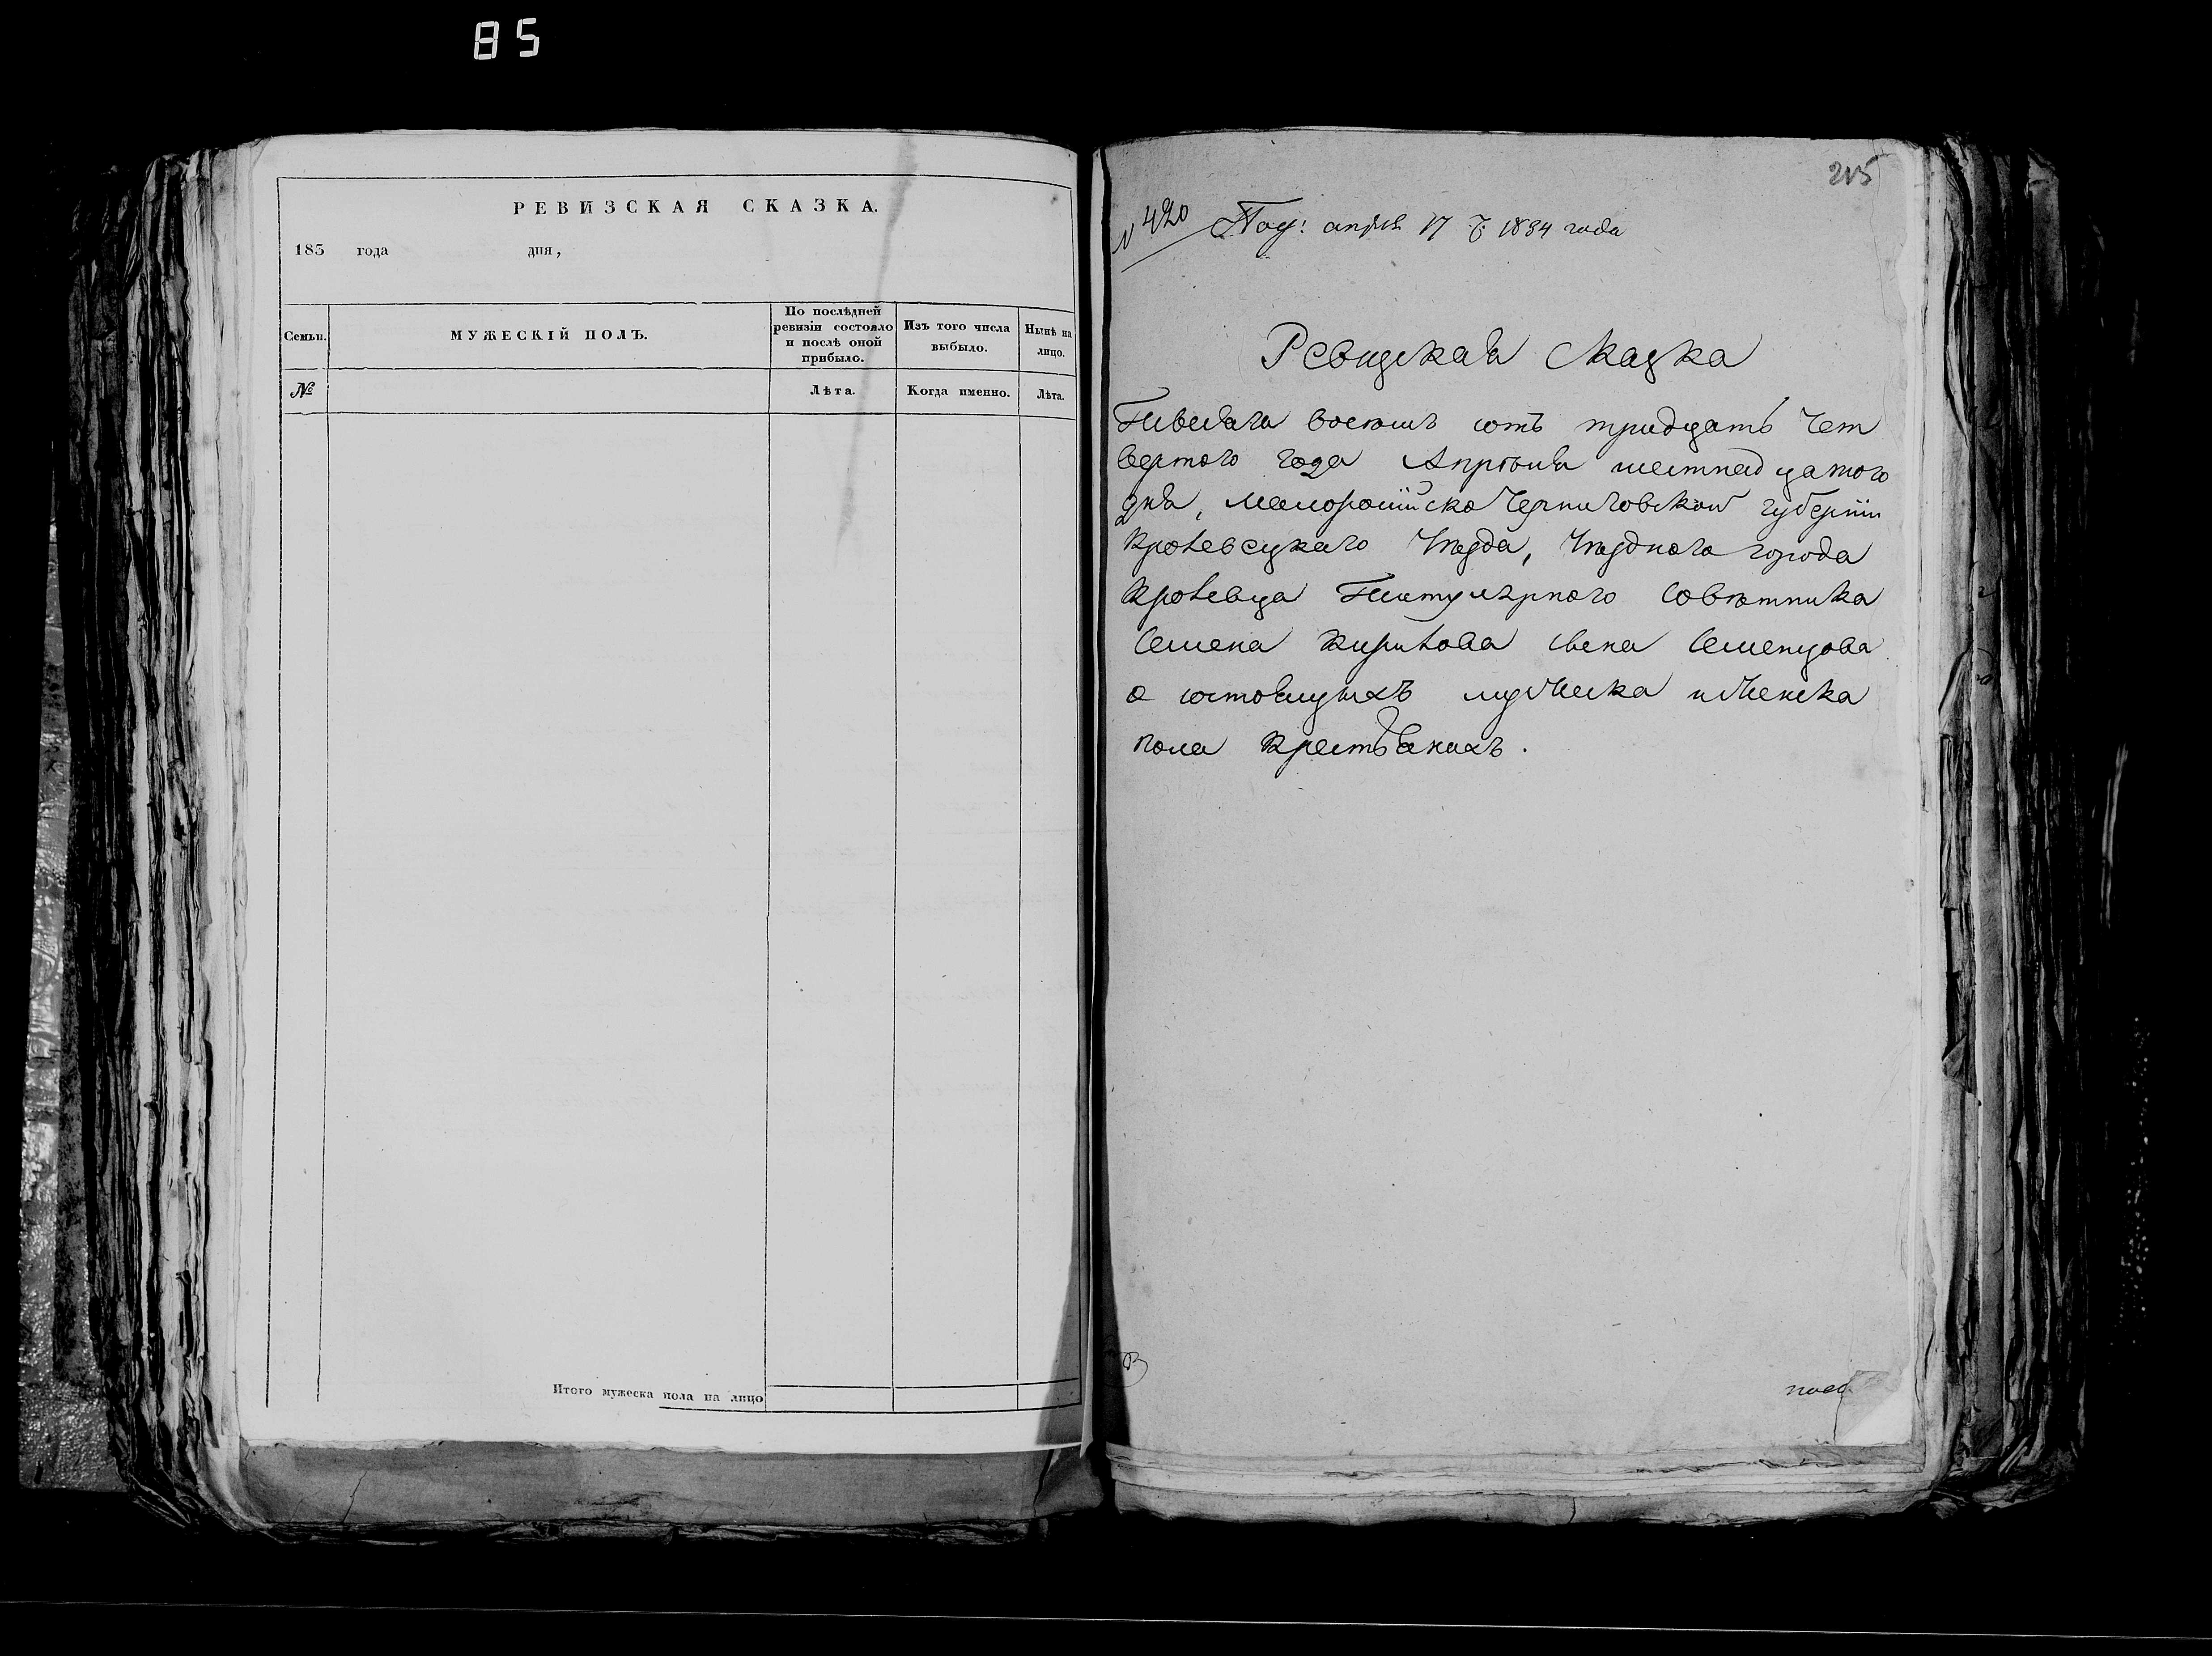 85
РЕВИЗСКАЯ СКАЗКА.
183 года дня,
Семьи.
МУЖЕСКІЙ ПОЛЪ.
По послѣдней
ревизіи состояло
и послѣ оной
прибыло.
Изъ того числа
выбыло.
Нынѣ на
лицо.
№
Лѣта.
Когда именно.
Лѣта.
Итого мужеска пола на лицо
215
N 420 Под: апрѣля 17 д. 1834 года
Ревизская Сказка
Тисячя восемъ сотъ тридцать Чет
вертого года Апрѣля шестнадцатого
дня, Малоросійско Черниговской губерніи
Кролевецкаго Уѣзда, Уѣзднаго города
Кролевца Титулярного Совѣтника
Семена Кирилова сына Семенцова
о состоящихъ мужеска и женска
пола крестьянахъ.